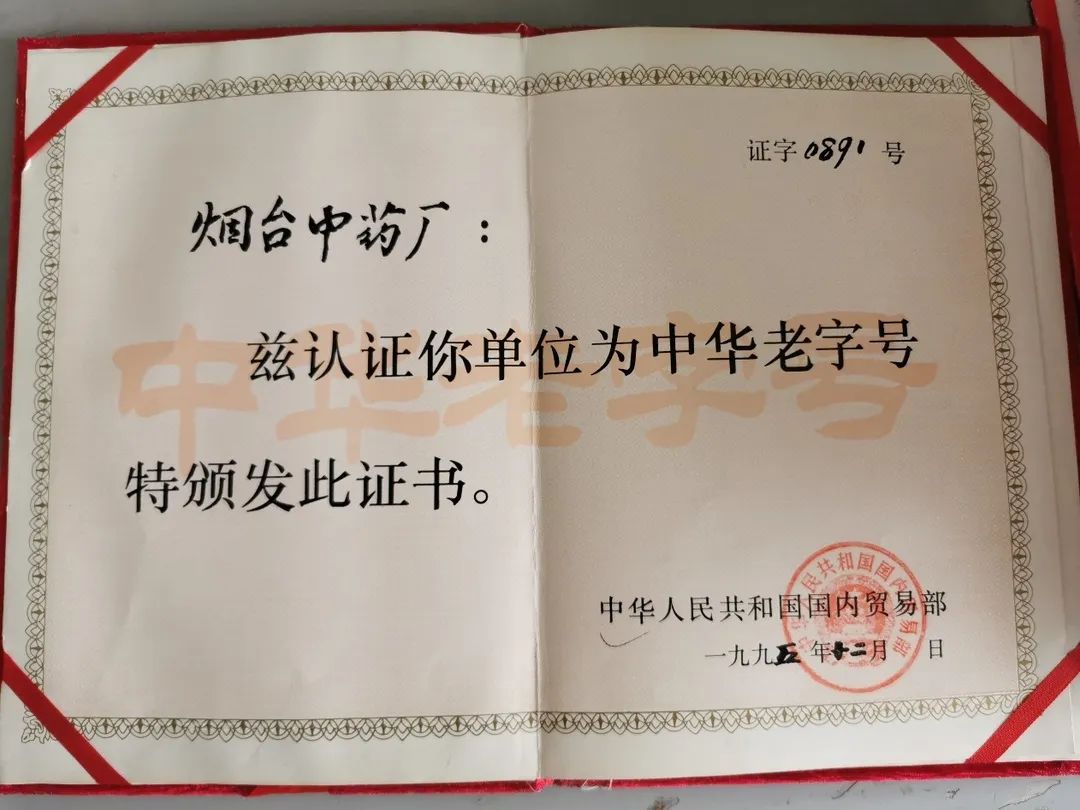 证字0891号
烟台中药厂：
中华老字号
兹认证你单位为中华老字号
特颁发此证书。
中华人民共和国国内贸易部
中华人民共和国国内贸易部
一九九五年十二月 日